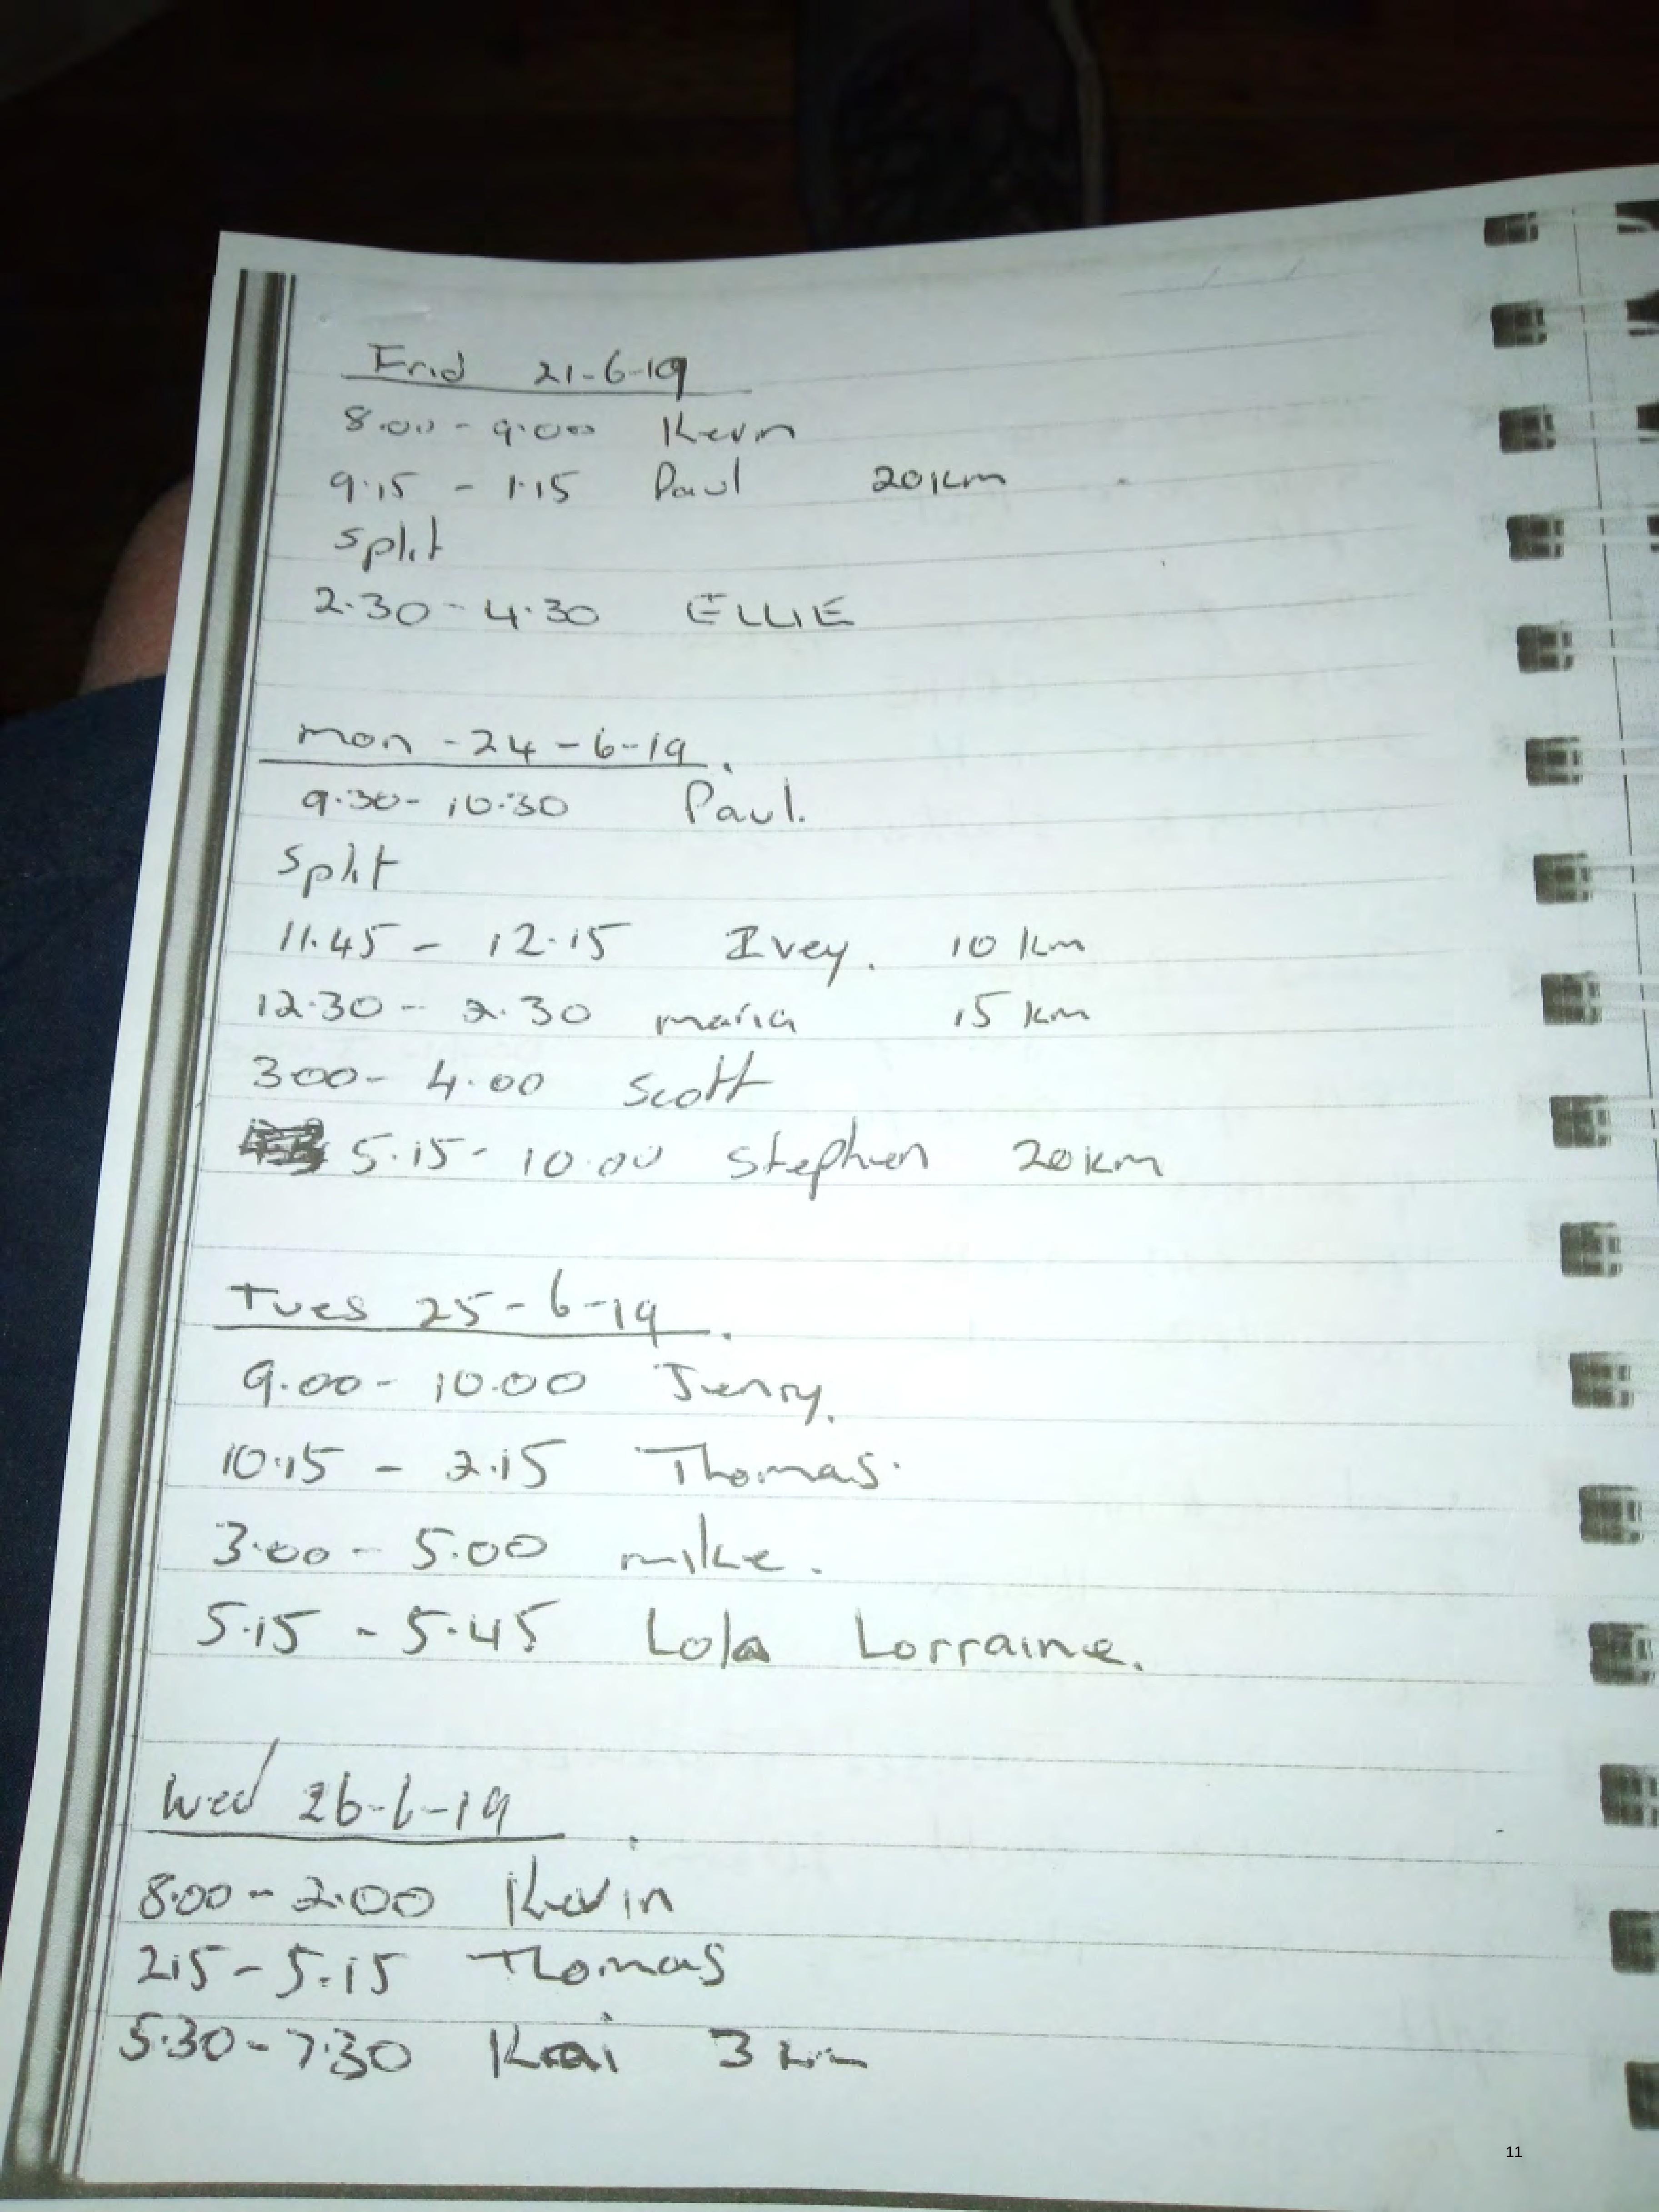 Frid 21-6-19
8.00 - 9.00 Kevin
9.15 - 1.15 Paul 20km
split
2.30 - 4.30 ELLIE
mon - 24 - 6 - 19.
9.30 - 10.30 Paul.
split
11.45 - 12.15 Ivey. 10 km
12.30 - 2.30 maria 15 km
300 - 4.00 Scott
5.15 - 10.00 Stephen 20km
Tues 25 - 6 - 19.
9.00 - 10.00 Jenny.
10.15 - 2.15 Thomas.
3.00 - 5.00 mike.
5.15 - 5.45 Lola Lorraine.
Wed 26-6-19
8.00 - 2.00 Kevin
215 - 5.15 Thomas
5.30 - 7.30 Kai 3 km
11